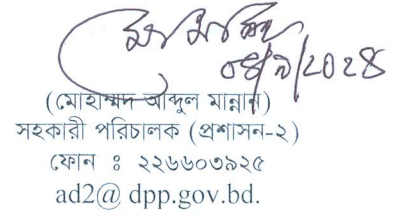 ০৪/৯/২০২৪
(মোহাম্মদ আব্দুল মান্নান)
সহকারী পরিচালক (প্রশাসন-২)
ফোন ঃ ২২৬৬০৩৯২৫
ad2@ dpp.gov.bd.